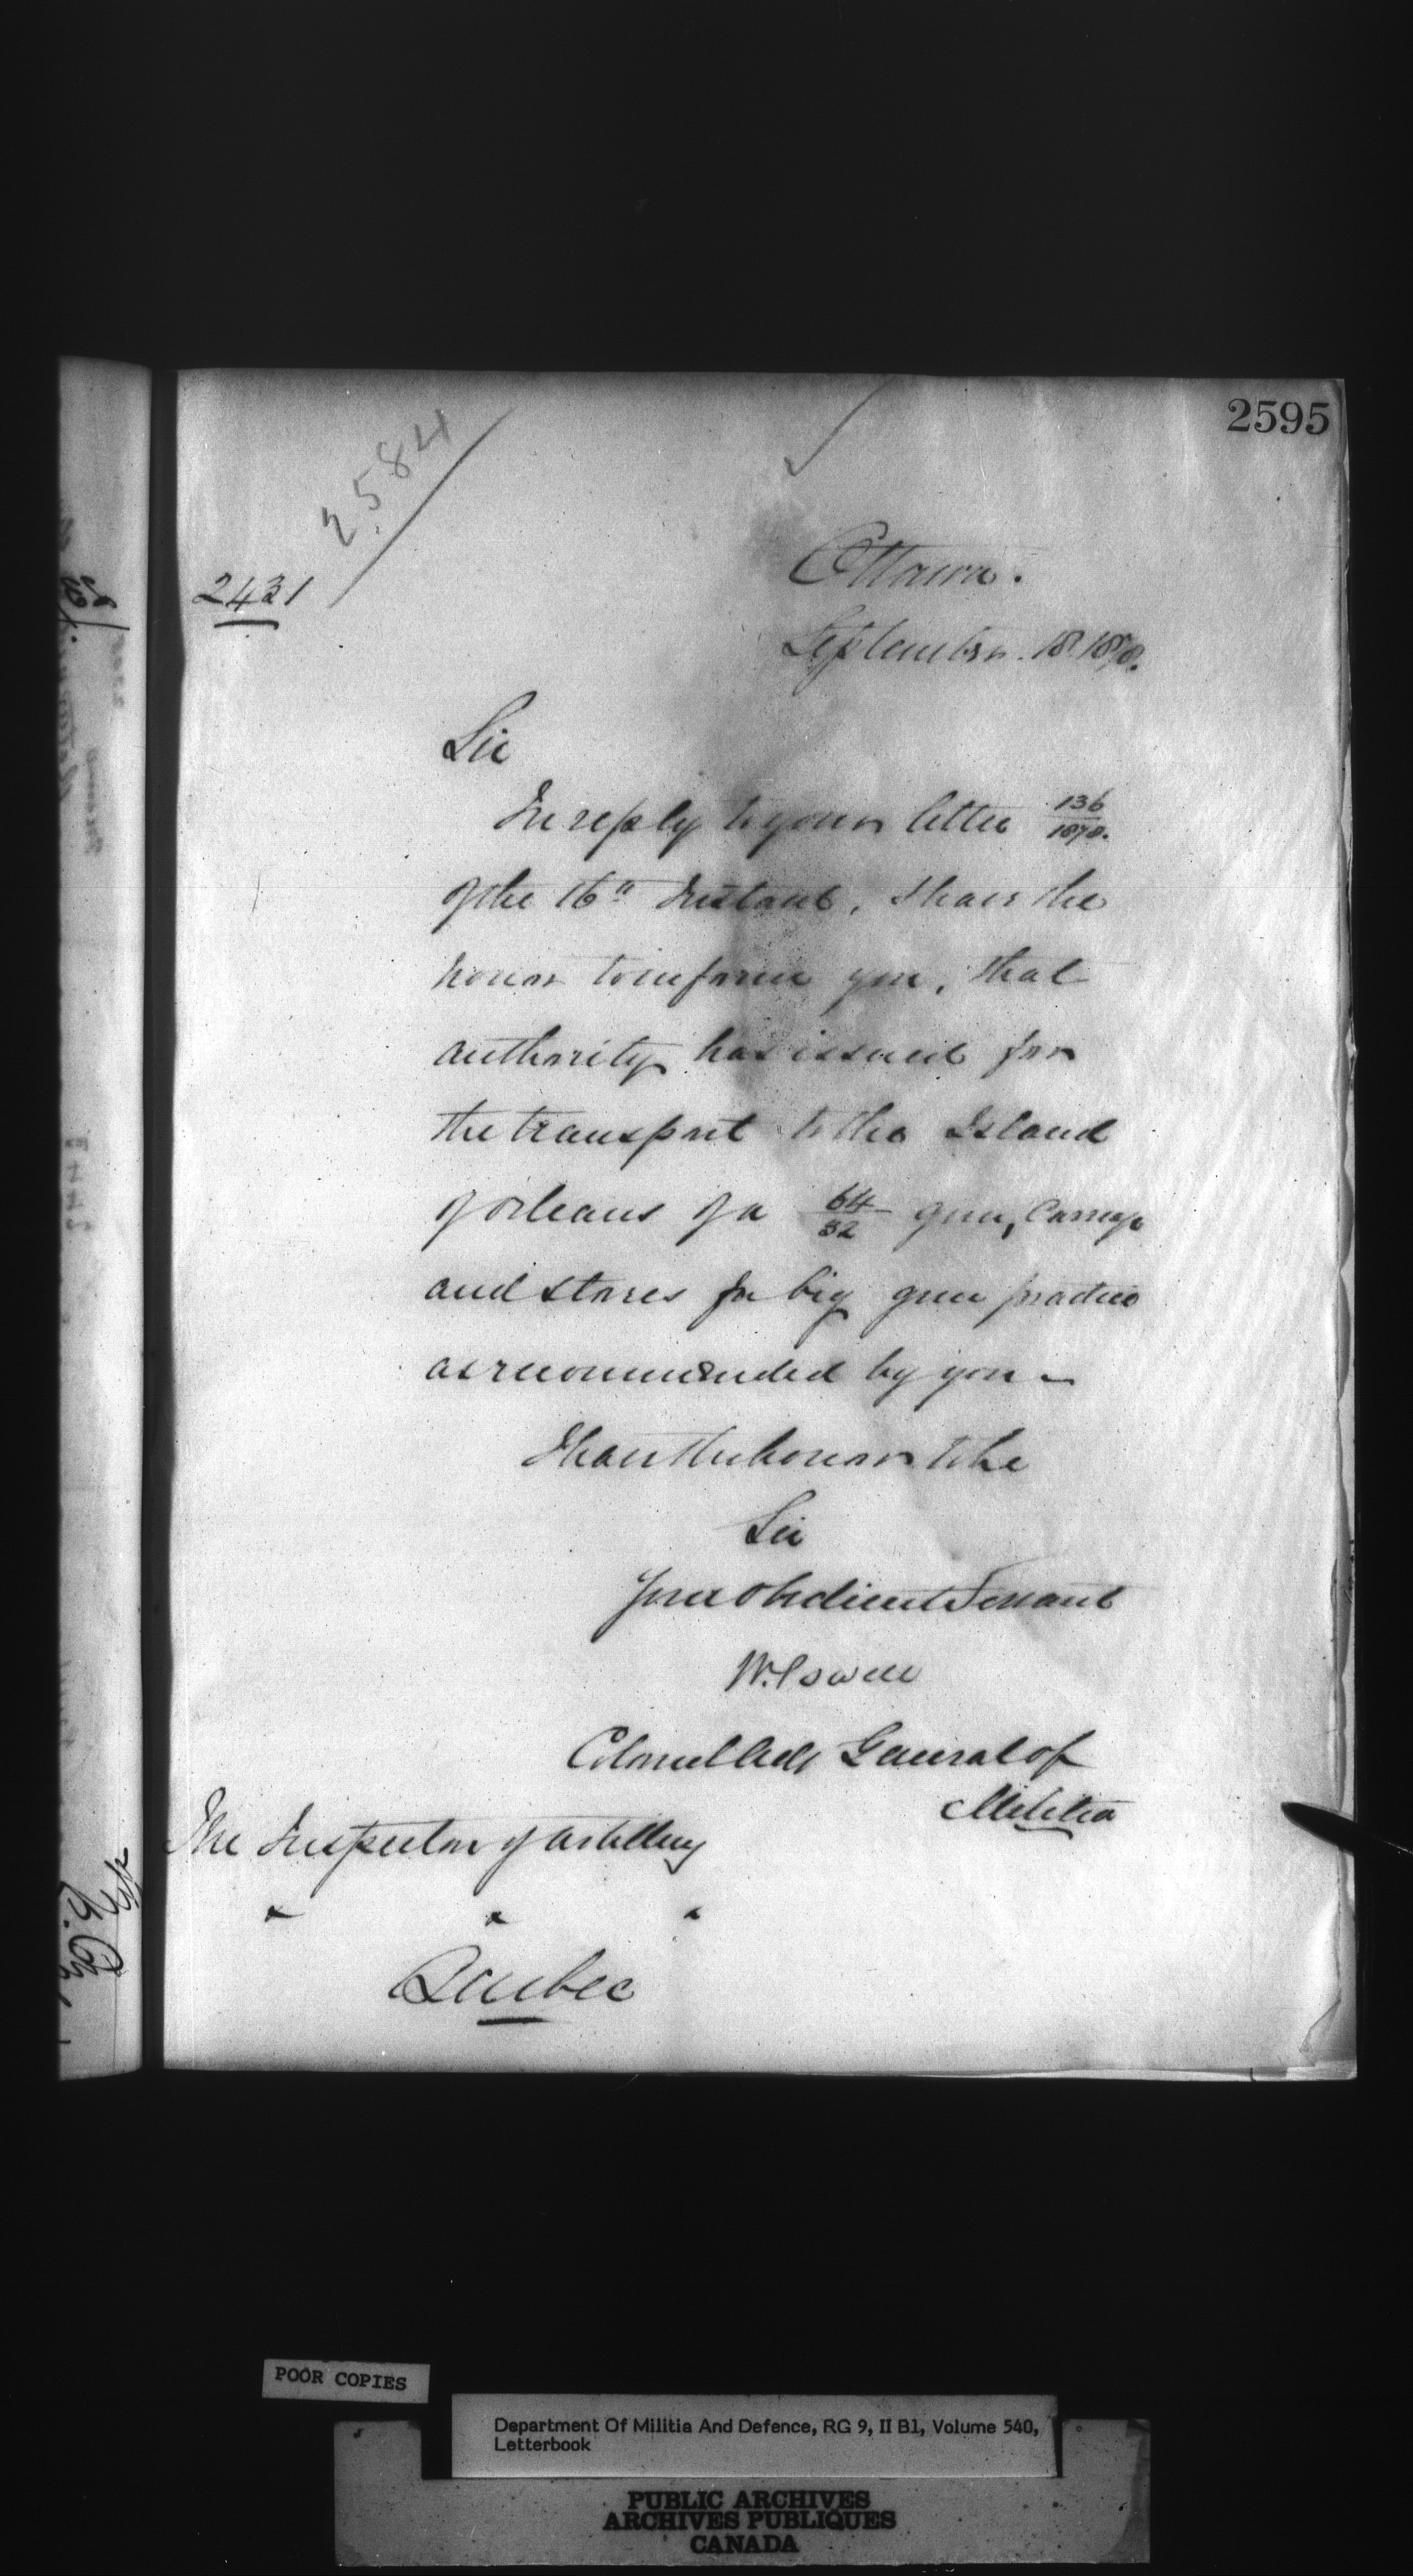 2595
2584
2431
Ottawa.
September. 18. 1878.
Sir
In reply to your letter 136/1878.
of the 16th Instant, I have the
honor to inform you, that
authority has issued for
the transport to the Island
of Orleans of a 64/32 gun, Carriage
and stores for big gun practice
as recommended by you –
I have the honor to be
Sir
Your obedient Servant
W. Powell
Colonel Adjt General of
Militia
The Inspector of Artillery
" " "
Quebec
POOR COPIES
Department Of Militia And Defence, RG 9, II B1, Volume 540,
Letterbook
PUBLIC ARCHIVES
ARCHIVES PUBLIQUES
CANADA